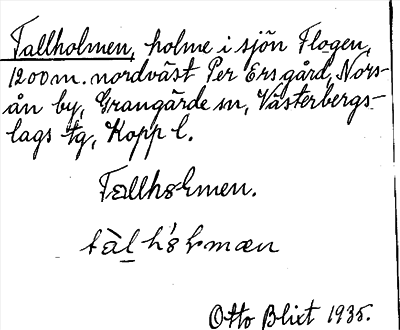 Tallholmen, holme i sjön Flogen,
1200 m. nordväst Per Ersgård, Nors-
ån by, Grangärde sn, Västerbergs-
lags tg, Kopp l.
Tallholmen.
Otto Blixt 1935.